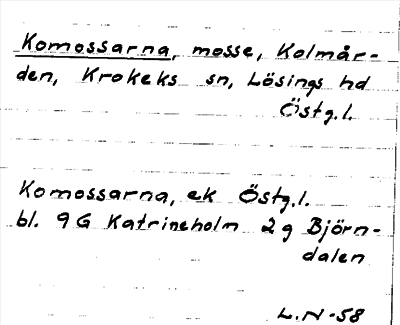 Komossarna, mosse, Kolmår-
den, Krokeks sn, Lösings hd
Östg.l.
Komossarna, ek Östg.l.
bl. 9G Katrineholm 2g Björn-
dalen
L.N-58